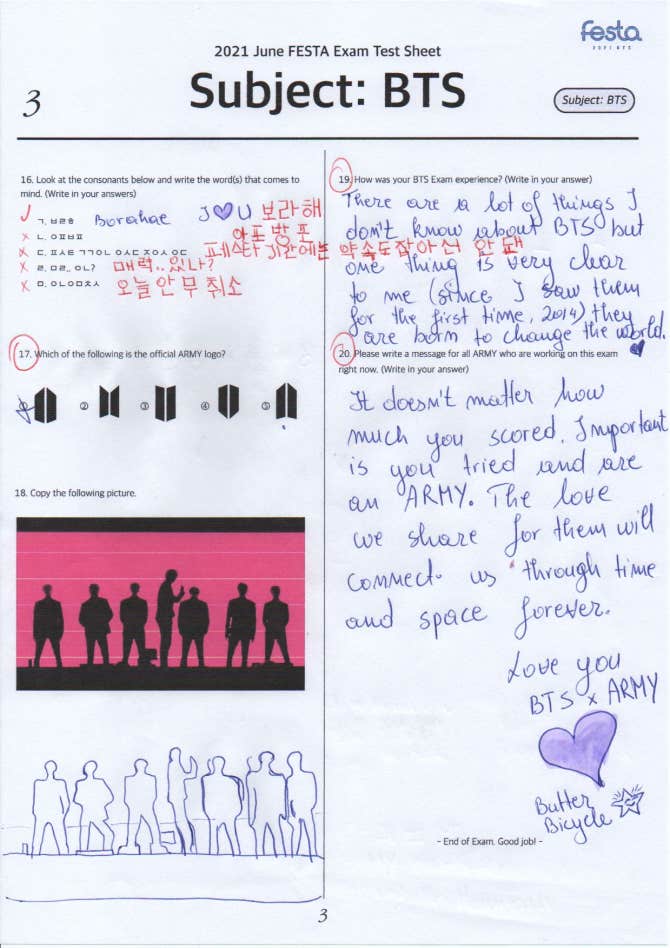 festa
2021 BTS
2021 June FESTA Exam Test Sheet
3
Subject: BTS
Subject: BTS
16. Look at the consonants below and write the word(s) that comes to
mind. (Write in your answers)
ㄱ. ㅂㄹㅎ Borahae J💜U 보라해
ㄴ. ㅇㅍㅂㅍ 아포방포
ㄷ. ㅍㅅㅌ ㄱㄱㅇㄴ ㅇㅅㄷ ㅈㅇㅅ ㅇㄷ 페스타 기간에는 약속도잡아선 안돼
ㄹ. ㅁㄹ.. ㅇㄴ? 매력..있나?
ㅁ. ㅇㄴㅇㅁㅊㅅ 오늘 안무 취소
17. Which of the following is the official ARMY logo?
① ② ③ ④ ⑤
18. Copy the following picture.
19. How was your BTS Exam experience? (Write in your answer)
There are a lot of things I
don't know about BTS but
one thing is very clear
to me (since I saw them
for the first time, 2014) they
are born to change the world.
20. Please write a message for all ARMY who are working on this exam
right now. (Write in your answer)
It doesn't matter how
much you scored. Important
is you tried and are
an ARMY. The love
we share for them will
connect us through time
and space forever.
Love you
BTS x ARMY
Butter
Bicycle
- End of Exam. Good job! -
3